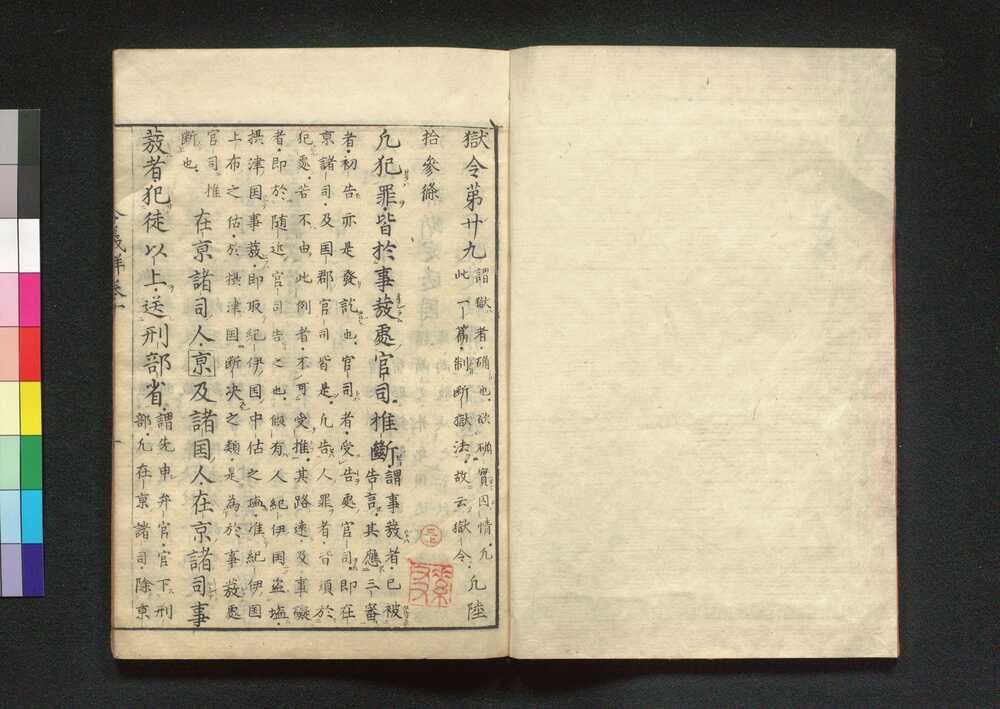 獄令第廿九
謂獄者确也欲确實囚情凡
此一篇制断獄法故云獄令
凡陸
拾參條
凡犯罪皆於事發處官司推斷
謂事發者已被
告言其應三審
者初告亦是發訖也官司者受告處官司即在
京諸司及国郡官司皆是凡告人罪者皆須於
犯處若不由此例者不可受推其路遠及事礙
者即於随近官司告之也假有人紀伊国盗塩
摂津国事發即取紀伊国中估之塩准紀伊国
上布之估於摂津国断决之類是為於事發處
官司推
断也
在京諸司人京及諸国人在京諸司事
發者犯徒以上送刑部省
謂先申弁官官下刑
部凡在京諸司除京